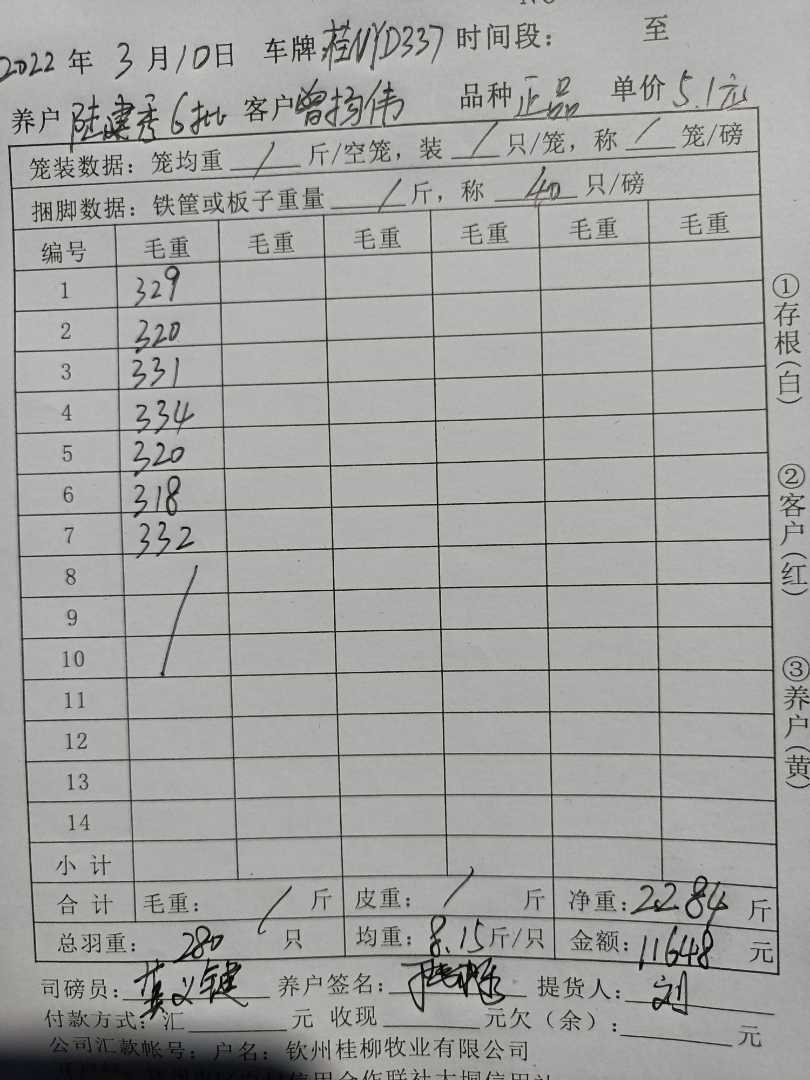 2022年3月10日 车牌 桂NYD337 时间段: 至
养户 陆建秀6批 客户曾扬伟 品种 正品 单价 5.1元
笼装数据: 笼均重 / 斤/空笼, 装 / 只/笼, 称 / 笼/磅
捆脚数据: 铁筐或板子重量 / 斤, 称 40 只/磅
编号 毛重 毛重 毛重 毛重 毛重 毛重
1 329
2 320
3 331
4 334
5 320
6 318
7 332
8
9
10
11
12
13
14
小计
合计 毛重: / 斤 皮重: / 斤 净重: 2284 斤
总羽重: 280 只 均重: 8.15斤/只 金额: 11648 元
司磅员: 养户签名: 提货人: 刘
付款方式: 汇 元 收现 元欠(余): 元
公司汇款帐号: 户名: 钦州桂柳牧业有限公司
①存根(白)
②客户(红)
③养户(黄)